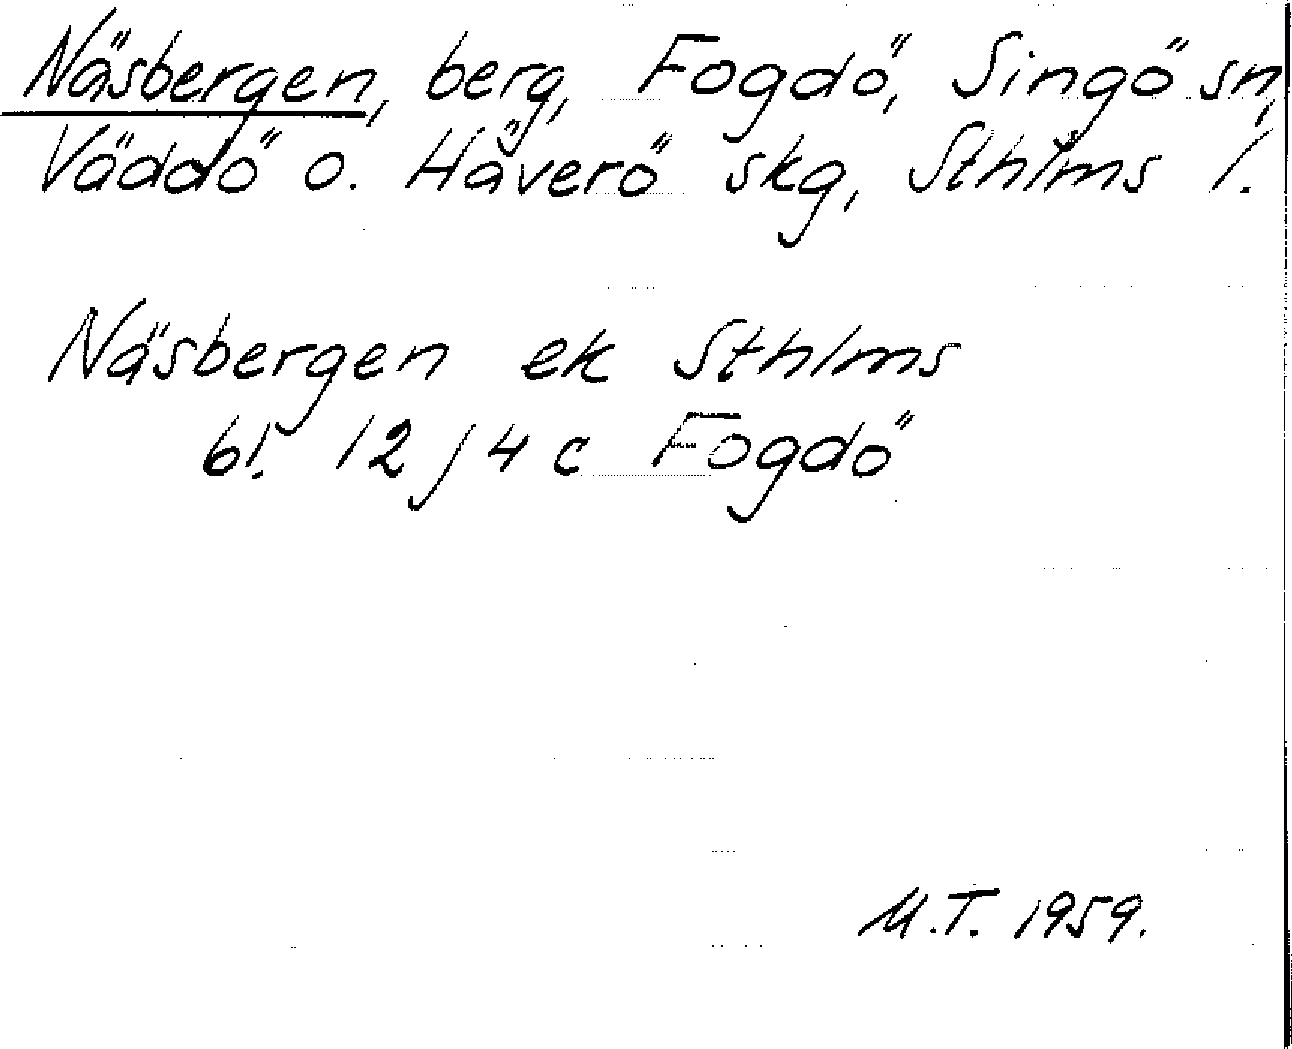 Näsbergen, berg, Fogdö, Singö sn,
Väddö o. Häverö skg, Sthlms l.
Näsbergen ek Sthlms
bl. 12 j 4 c Fogdö
M.T. 1959.